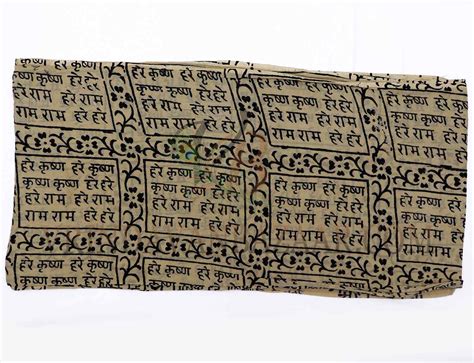 कृष्ण कृष्ण हरे हरे
हरे राम हरे राम
राम राम हरे हरे
हरे कृष्ण हरे कृष्ण
कृष्ण कृष्ण हरे हरे
हरे राम हरे राम
राम राम हरे हरे
हरे कृष्ण हरे कृष्ण
कृष्ण कृष्ण हरे हरे
हरे राम हरे राम
राम राम हरे हरे
हरे कृष्ण हरे
कृष्ण कृष्ण हरे
हरे राम हरे
राम राम हरे
हरे कृष्ण हरे कृष्ण
कृष्ण कृष्ण हरे हरे
हरे राम हरे राम
राम राम हरे हरे
हरे कृष्ण हरे कृष्ण
कृष्ण कृष्ण हरे हरे
हरे राम हरे राम
राम राम हरे हरे
हरे कृष्ण हरे कृष्ण
कृष्ण कृष्ण हरे हरे
हरे राम हरे राम
राम राम हरे हरे
हरे कृष्ण
कृष्ण कृष्ण
हरे राम
राम राम
हरे कृष्ण हरे कृष्ण
कृष्ण कृष्ण हरे हरे
हरे कृष्ण हरे कृष्ण